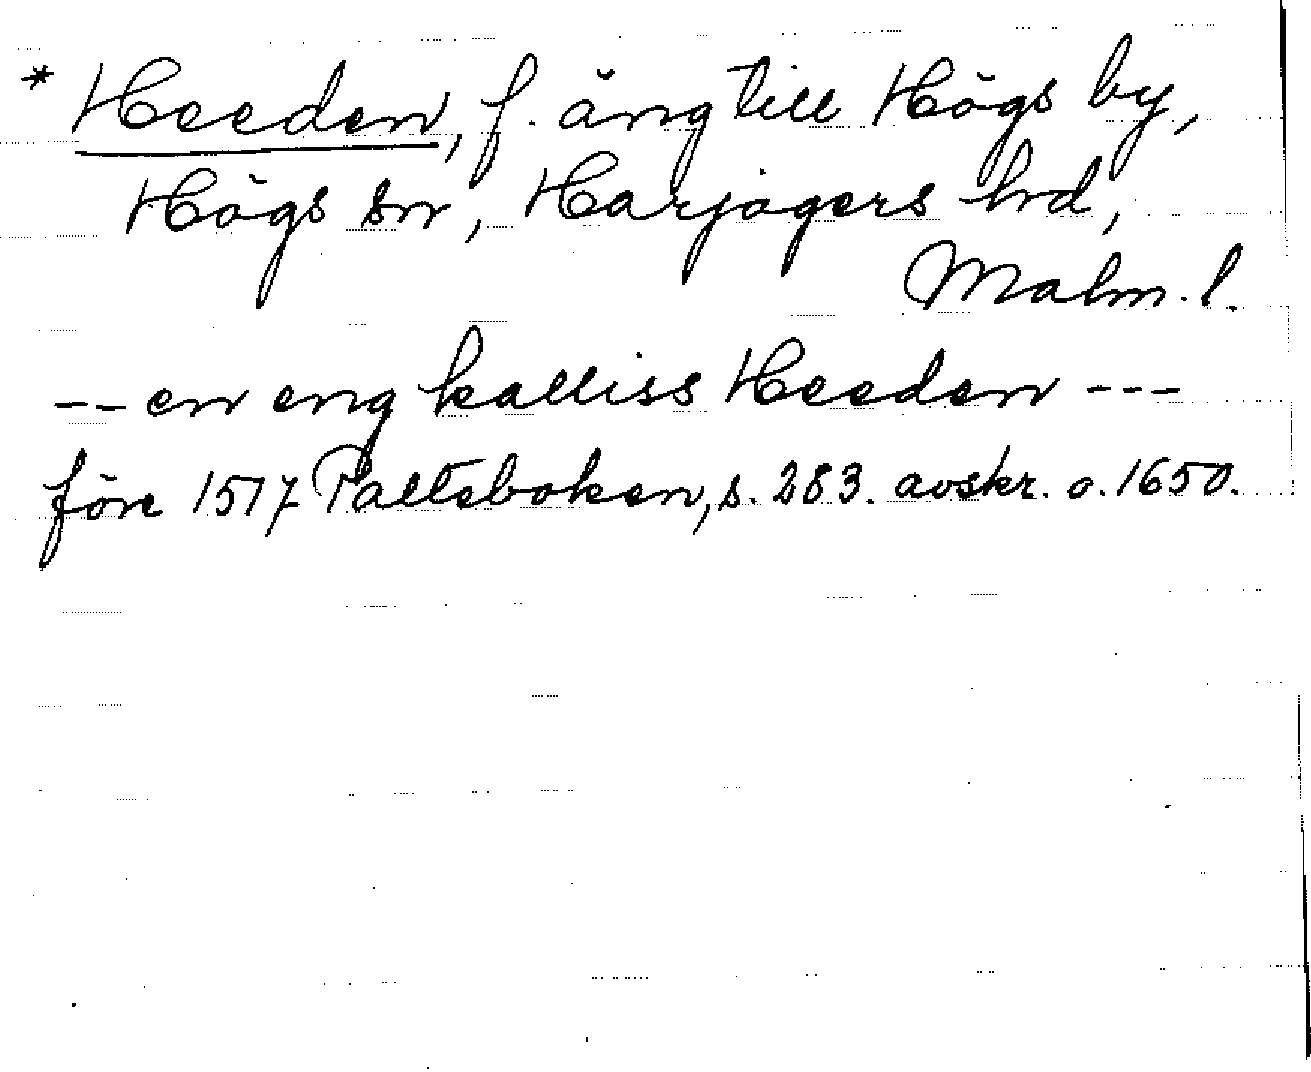 * Heeden, f. äng till Högs by,
Högs sn, Harjagers hd,
Malm. l.
-- en eng kalliss Heeden ---
före 1517 Palteboken, s. 283. avskr. o. 1650.